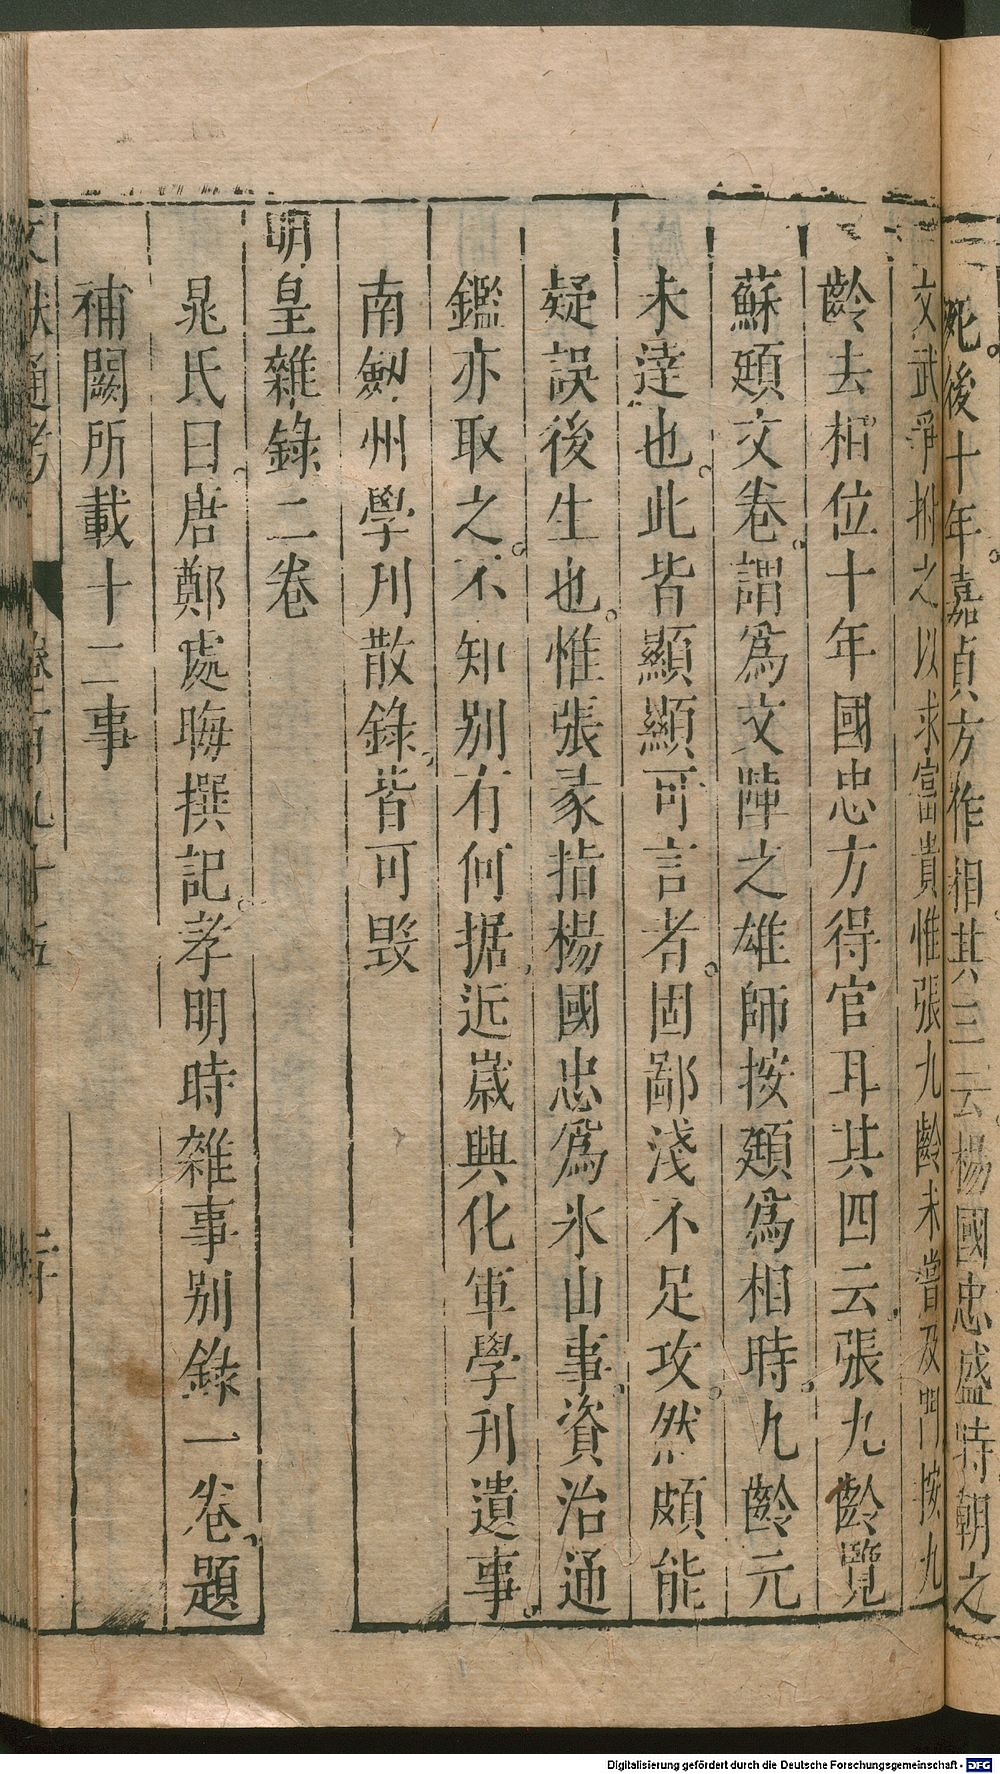 死後十年嘉貞方作相其三云楊國忠盛時朝之
文武爭拊之以求富貴惟張九齡未嘗及門按九
齡去相位十年國忠方得官耳其四云張九齡覽
蘇頲文卷謂爲文陣之雄師按頲爲相時九齡元
未達也此皆顯顯可言者固鄙淺不足攻然頗能
疑誤後生也惟張彖指楊國忠爲氷山事資治通
鑑亦取之不知别有何据近歲興化軍學刋遺事
南劔州學刋散錄皆可毀
明皇雜錄二卷
晁氏曰唐鄭處晦撰記孝明時雜事别錄一卷題
補闕所載十二事
文獻通考 卷一百九十五 二十
Digitalisierung gefördert durch die Deutsche Forschungsgemeinschaft - DFG